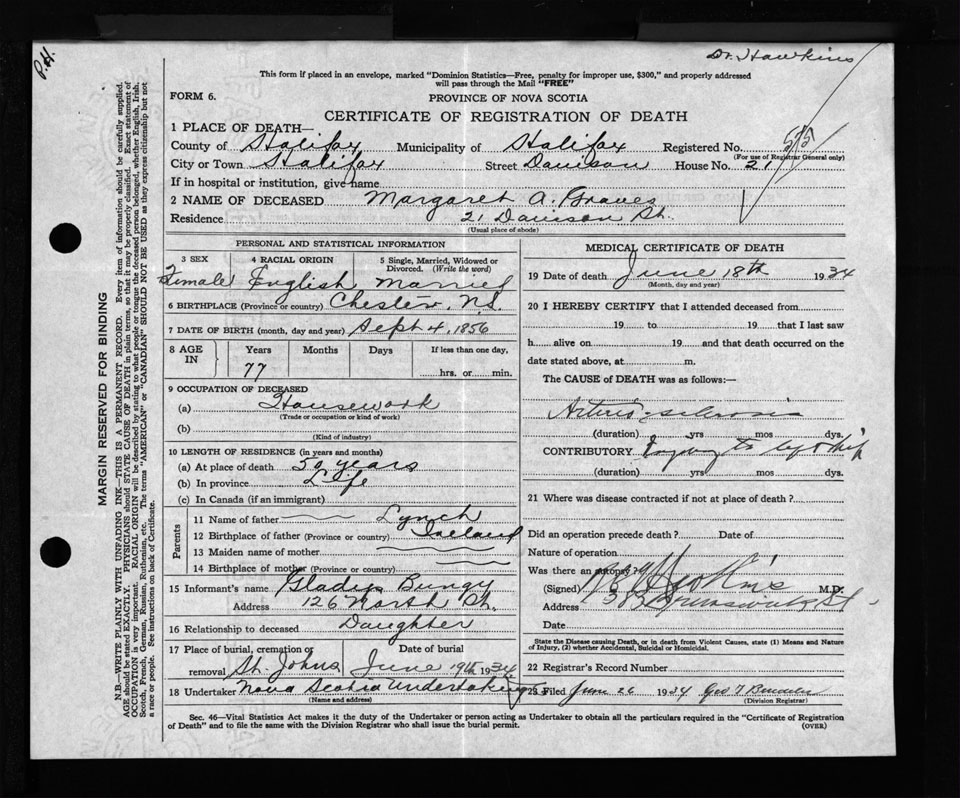 Dr. Hawkins
P.H.
This form if placed in an envelope, marked "Dominion Statistics—Free, penalty for improper use, $300," and properly addressed
will pass through the Mail "FREE"
FORM 6.
PROVINCE OF NOVA SCOTIA
CERTIFICATE OF REGISTRATION OF DEATH
1 PLACE OF DEATH—
County of Halifax Municipality of Halifax Registered No.
(For use of Registrar General only)
City or Town Halifax Street Davison House No. 21
If in hospital or institution, give name
2 NAME OF DECEASED Margaret A. Graves
Residence 21 Davison St.
(Usual place of abode)
PERSONAL AND STATISTICAL INFORMATION
3 SEX 4 RACIAL ORIGIN 5 Single, Married, Widowed or
Divorced. (Write the word)
Female English Married
6 BIRTHPLACE (Province or country) Chester N.S.
7 DATE OF BIRTH (month, day and year) Sept 4, 1856
8 AGE IN Years Months Days If less than one day,
77 hrs. or min.
9 OCCUPATION OF DECEASED
(a) Housework
(Trade or occupation or kind of work)
(b)
(Kind of industry)
10 LENGTH OF RESIDENCE (in years and months)
(a) At place of death 50 years
(b) In province Life
(c) In Canada (if an immigrant)
Parents
11 Name of father Lynch
12 Birthplace of father (Province or country) Ireland
13 Maiden name of mother
14 Birthplace of mother (Province or country)
15 Informant's name Gladys Bungy
Address 126 North St.
16 Relationship to deceased Daughter
17 Place of burial, cremation or Date of burial
removal St. Johns June 19th 1934
18 Undertaker Nova Scotia Undertaking
(Name and address)
MEDICAL CERTIFICATE OF DEATH
19 Date of death June 18th 1934
(Month, day and year)
20 I HEREBY CERTIFY that I attended deceased from
19 to 19 that I last saw
h alive on 19 and that death occurred on the
date stated above, at m.
The CAUSE of DEATH was as follows:—
Arterio-sclerosis
(duration) yrs mos dys.
CONTRIBUTORY Injury to left hip
(duration) yrs mos dys.
21 Where was disease contracted if not at place of death?
Did an operation precede death? Date of
Nature of operation
Was there an autopsy?
(Signed) M.D.
Address Brunswick St.
Date
State the Disease causing Death, or in death from Violent Causes, state (1) Means and Nature
of Injury, (2) whether Accidental, Suicidal or Homicidal.
22 Registrar's Record Number
23 Filed June 26 1934 Geo T
(Division Registrar)
Sec. 46—Vital Statistics Act makes it the duty of the Undertaker or person acting as Undertaker to obtain all the particulars required in the "Certificate of Registration
of Death" and to file the same with the Division Registrar who shall issue the burial permit.
(OVER)
MARGIN RESERVED FOR BINDING
N.B.—WRITE PLAINLY WITH UNFADING INK—THIS IS A PERMANENT RECORD. Every item of information should be carefully supplied.
AGE should be stated EXACTLY. PHYSICIANS should STATE CAUSE OF DEATH in plain terms, so that it may be properly classified. Exact statement of
OCCUPATION is very important. RACIAL ORIGIN will be described by stating to what people or tongue the deceased person belonged, whether English, Irish,
Scotch, French, German, Russian, Ruthenian, etc. The terms "AMERICAN" or "CANADIAN" SHOULD NOT BE USED as they express citizenship but not
a race or people. See instructions on back of Certificate.